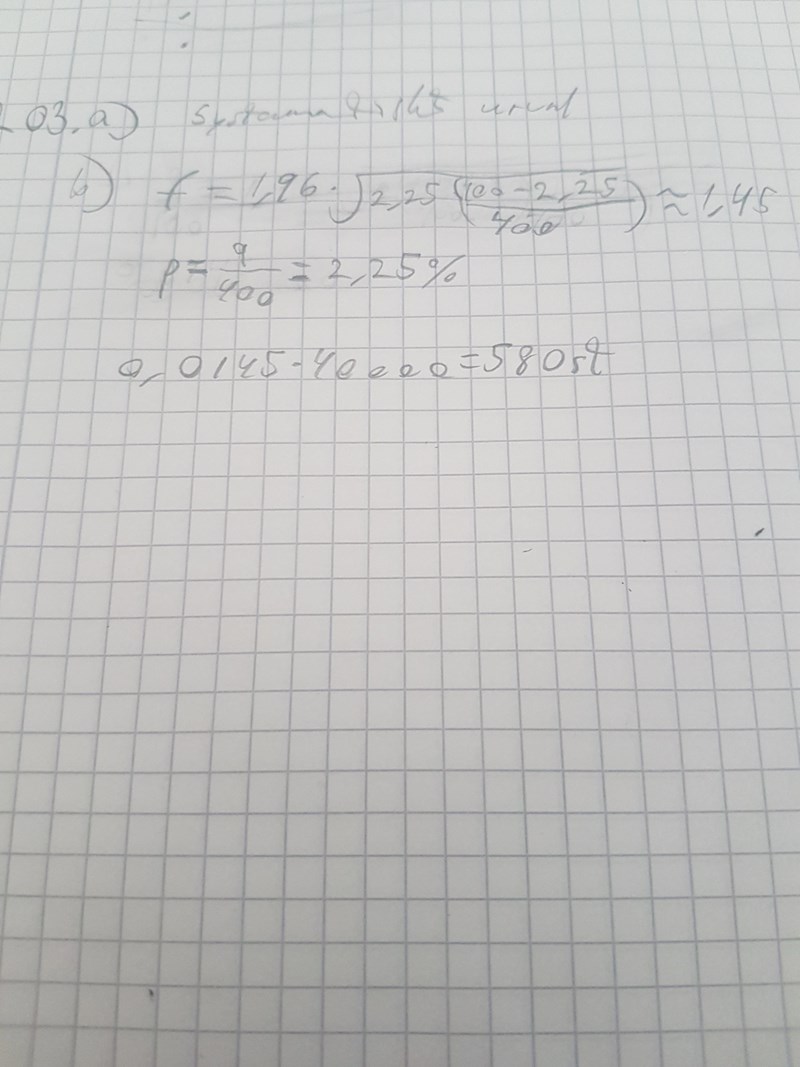 03. a) Systematiskt urval
b) f = 1,96 · √2,25 (100 - 2,25 / 400) ≈ 1,45
p = 9/400 = 2,25%
0,0145 · 40000 = 580 st